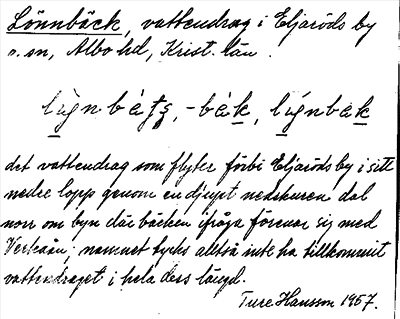 Lönnbäck, vattendrag i Eljaröds by
o. sn, Albo hd, Krist. län.
-bàk,
det vattendrag som flyter förbi Eljaröds by i sitt
nedre lopp genom en djupt nedskuren dal
norr om byn där bäcken ifråga förenar sig med
Verkaån; namnet tycks alltså inte ha tillkommit
vattendraget i hela dess längd.
Ture Hansson 1967.